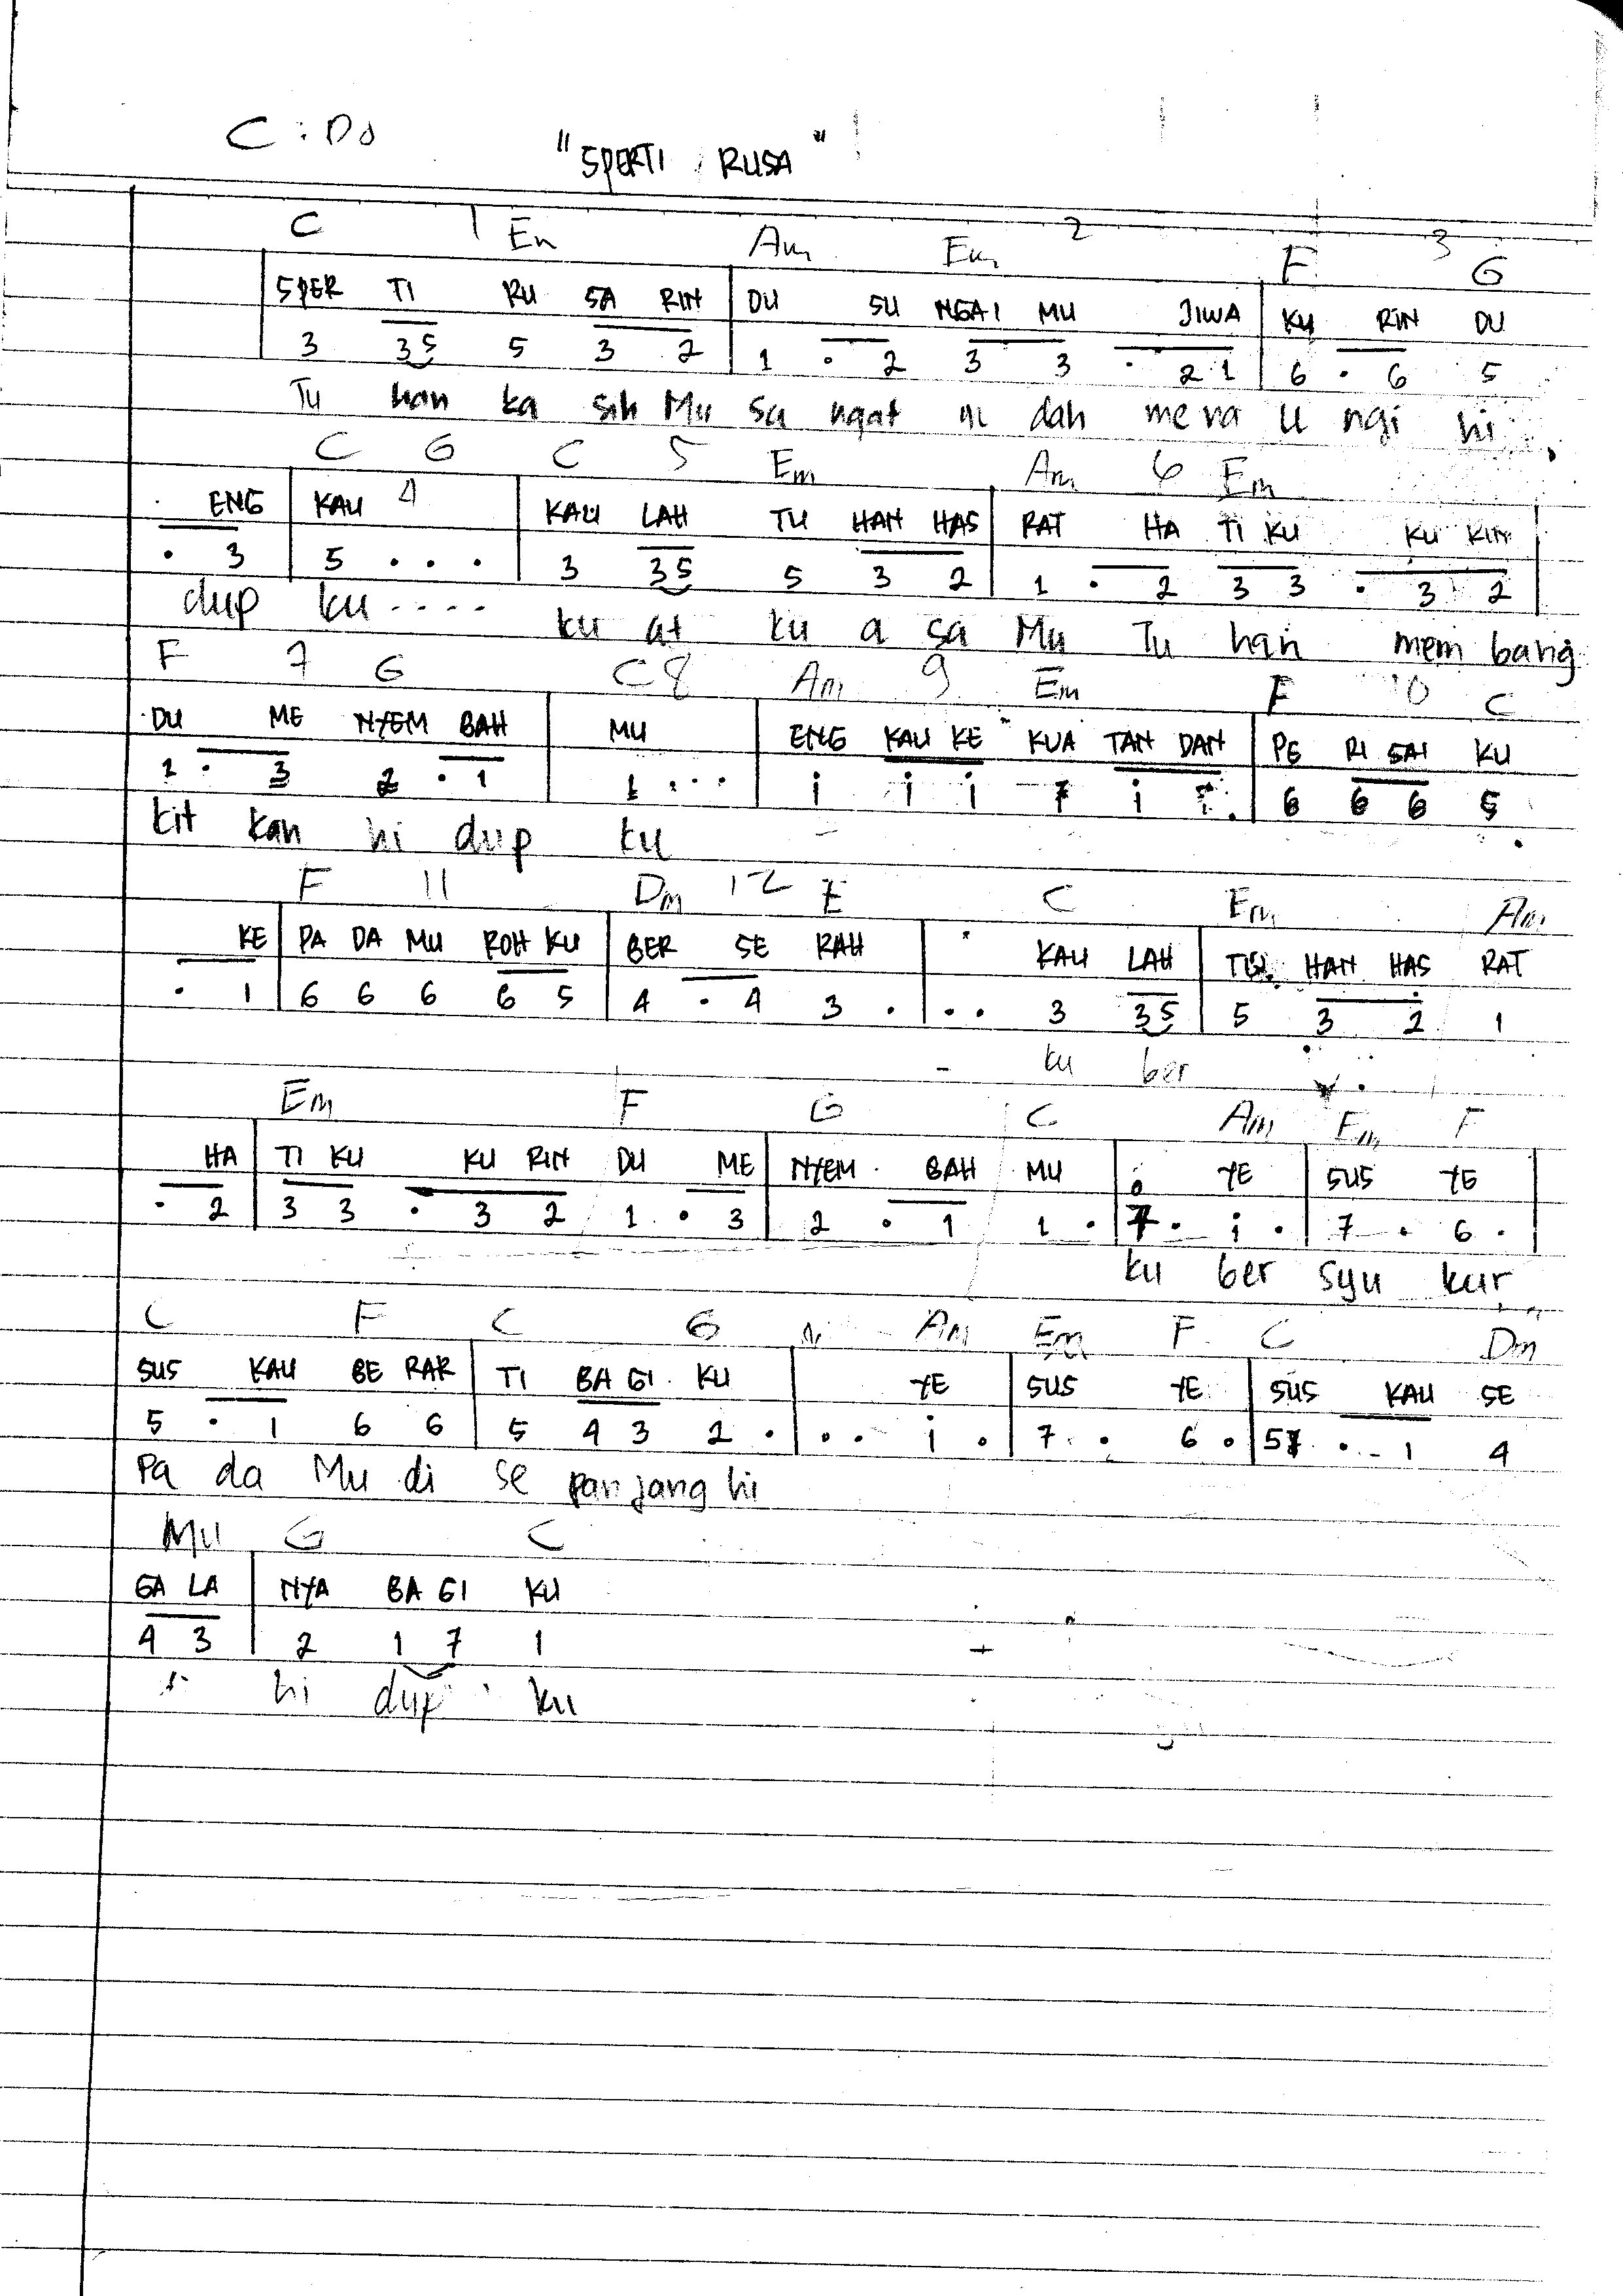 C : Do
"SPERTI RUSA"
C 1 Em Am Em 2 F 3 G
SPER TI RU SA RIN | DU SU NGAI MU JIWA | KU RIN DU
3 35 5 3 2 | 1 . 2 3 3 . 2 1 | 6 . 6 5
Tu han ka sih Mu sa ngat in dah mena u ngi hi
C 4 G C 5 Em Am 6 Em
ENG | KAU | KAU LAH TU HAN HAS | RAT HA TI KU KU RIN
. 3 | 5 . . . | 3 35 5 3 2 | 1 . 2 3 3 . 3 2
dup ku .... ku at ku a sa Mu Tu han mem bang
F 7 G C 8 Am 9 Em F 10 C
DU ME NYEM BAH | MU | ENG KAU KE KUA TAN DAN | PE RI SAI KU
1 . 3 2 . 1 | 1 . . . | i i i 7 i | 6 6 6 5
kit kan hi dup ku
F 11 Dm 12 E C Em Am
KE | PA DA MU ROH KU | BER SE RAH | KAU LAH | TU HAN HAS RAT
. 1 | 6 6 6 6 5 | 4 . 4 3 . | . . 3 35 | 5 3 2 1
ku ber
Em F G C Am Em F
HA | TI KU KU RIN DU ME | NYEM BAH MU | YE | SUS YE
. 2 | 3 3 . 3 2 1 . 3 | 2 . 1 1 . | . i . | 7 . 6 .
ku ber syu kur
C F C G Am Em F C Dm
SUS KAU BE RAR | TI BA GI KU | YE | SUS YE | SUS KAU SE
5 . 1 6 6 | 5 4 3 2 . | . . i . | 7 . 6 . | 5 . 1 4
Pa da Mu di se panjang hi
Mu G C
GA LA | NYA BA GI KU
4 3 | 2 1 7 1
hi dup ku